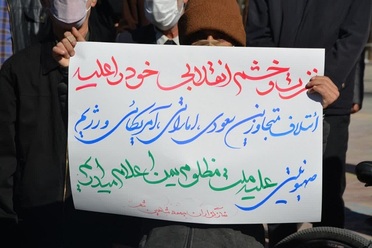 نفرت و خشم انقلابی خود را علیه
ائتلاف متجاوزین سعودی، اماراتی، آمریکائی و رژیم
صهیونیستی علیه ملت مظلوم یمن اعلام میداریم
نمازگزاران